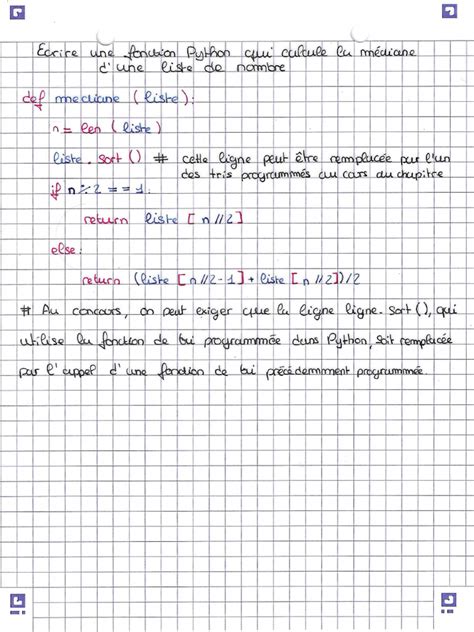 Ecrire une fonction Python qui calcule la médiane
d'une liste de nombre
def mediane (liste):
n = len (liste)
liste.sort () # cette ligne peut être remplacée par l'un
des tris programmés au cars au chapitre
if n % 2 == 1:
return liste [n//2]
else:
return (liste [n//2-1] + liste [n//2])/2
# Au concours, on peut exiger que la ligne ligne.sort(), qui
utilise la fonction de tri programmée dans Python, soit remplacée
par l'appel d'une fonction de tri précédemment programmée.